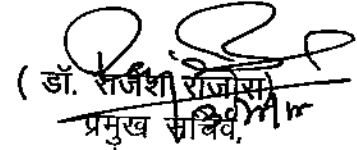 ( डॉ. राजेश राजौरा)
प्रमुख सचिव,